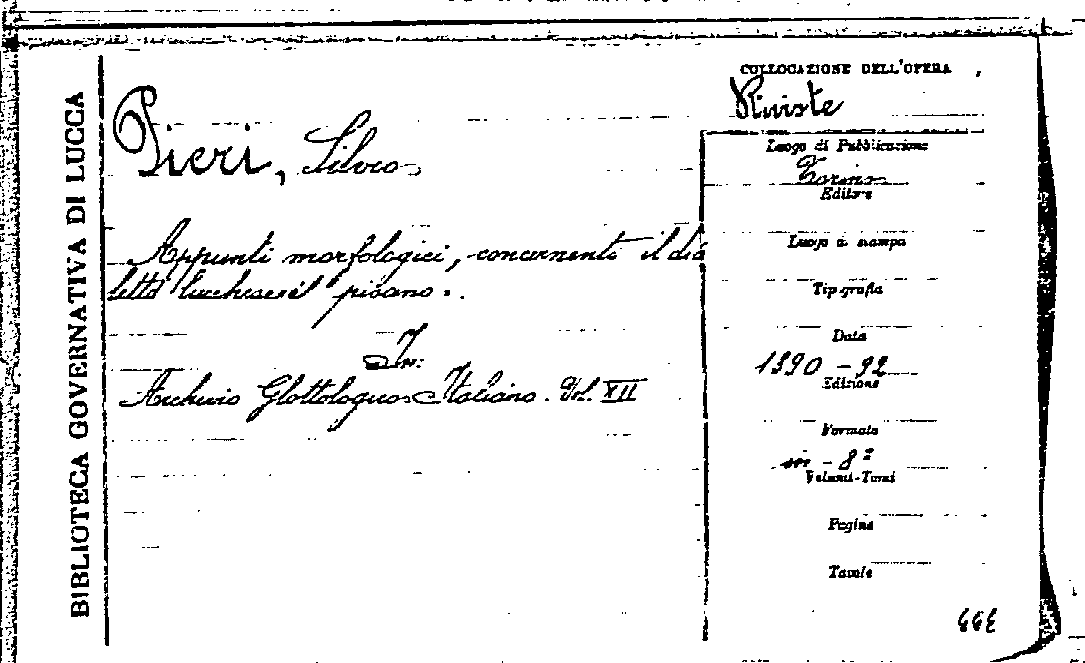 BIBLIOTECA GOVERNATIVA DI LUCCA
Pieri, Silvio
Appunti morfologici, concernenti il dia
letto lucchese e il pisano.
In:
Archivio Glottologico Italiano. Vol. XII
COLLOCAZIONE DELL'OPERA
Riviste
Luogo di Pubblicazione
Torino
Editore
Luogo di stampa
Tipografia
Data
1890-92
Edizione
Formato
in-8º
Volumi-Tomi
Pagine
Tavole